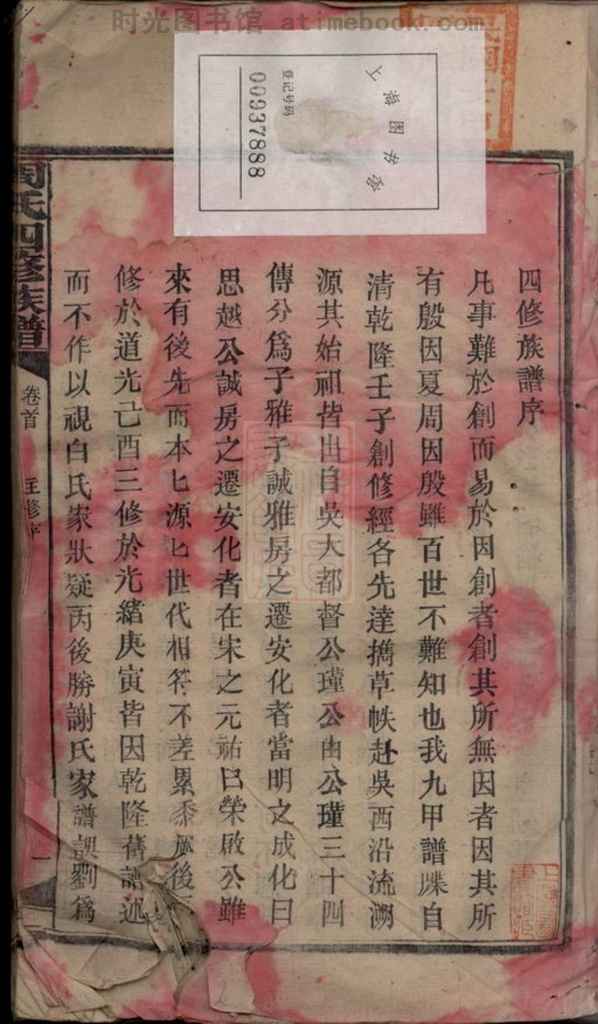 时光图书馆 - atimebook.com
登记号码
00937888
上海图书馆
四修族譜序
凡事難於創而易於因創者創其所無因者因其所
有殷因夏周因殷雖百世不難知也我九甲譜牒自
清乾隆壬子創修經各先達擕草帙赴吳西沿流溯
源其始祖皆出自吳大都督公瑾公由公瑾三十四
傳分爲子雅子誠雅房之遷安化者當明之成化曰
思越公誠房之遷安化者在宋之元祐曰榮啟公雖
來有後先而本匕源匕世代相符不差累黍厥後
修於道光己酉三修於光緒庚寅皆因乾隆舊譜述
而不作以視白氏家狀疑丙後勝謝氏家譜誤劉爲
周氏四修族譜
卷首
一